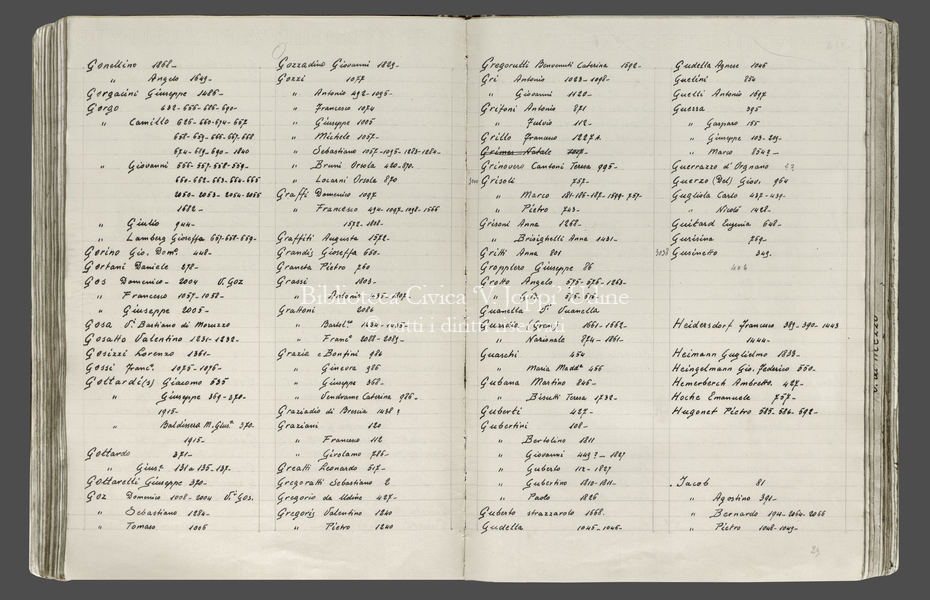 Gonellino 1868_
" Angelo 1649_
Gorgacini Giuseppe 1486_
Gorgo 642-666-686-690_
" Camillo 626-660-674-667
668-669-666-667-668
674-689-690-1840
" Giovanni 556-557-558-559_
660-662-663-664-665
2050-2053-2054-2055
1682_
" Giulio 944_
" Lamberg Gioseffa 667-668-669_
Gorino Gio. Domco. 448_
Gortani Daniele 278_
Gos Domenico - 2004 V. Goz
" Francesco 1057-1058_
" Giuseppe 2005_
Gosa V. Bastiano di Moruzzo
Gosatto Valentino 1231-1232_
Gosizzi Lorenzo 1361_
Gossi Franc. 1075-1076_
Gottardi(s) Giacomo 535
" Giuseppe 369-370_
1915_
" Baldissera M. Gius. 370_
1915_
Gottardo 371_
" Gius. 131a 135-137_
Gottarelli Giuseppe 370_
Goz Domenico 1008-2004 V. Gos.
" Sebastiano 1284_
" Tomaso 1006
Gozzadino Giovanni 1829_
Gozzi 1077
" Antonio 492-1095_
" Francesco 1074
" Giuseppe 1005
" Michele 1057_
" Sebastiano 1057-1095-1283-1284_
" Bruni Orsola 420-870_
" Locarni Orsola 870
Graffi Domenico 1097
" Francesco 494-1097-1098-1566
1572-1808_
Graffiti Augusta 1572_
Grandis Gioseffa 650_
Graneta Pietro 260
Grassi 1803_
" Antonio
Grattoni 2086
" Bartol.
" Franc. 2088-2089_
Grazia e Bonfini 984
" Ginevra 986
" Giuseppe 368_
" Vendrame Caterina 986_
Graziadio di Brescia 1438?
Graziani 120
" Francesco 112
" Girolamo 786_
Greatti Leonardo 517_
Gregoratti Sebastiano 2
Gregorio da Udine 427_
Gregoris Valentino 1240
" Pietro 1240
Gregorutti Benvenuti Caterina 1592_
Gri Antonio 1023-1098_
" Giovanni 1120_
Grifoni Antonio 871
" Fulvio 112_
Grillo Francesco 1227+.
Grimes Natale
Grinovero Cantoni Teresa 995_
Grisoli 757_
" Marco 181-186-187-1599-757
" Pietro 743_
Grisoni Anna 1268_
" Brisighelli Anna 1431_
Gritti Anna 801
Gropplero Giuseppe 86
Grotto Angelo 575-576-1263_
" Gio.
Guanella V. Vuanella
1661-1662_
" Nazionale 874-1861_
Guaschi 454
" Maria Madda 466
Gubana Martino 846_
" Bisutti Teresa 1732_
Guberti 427_
Gubertini 108_
" Bertolino 1811
" Giovanni 449?-1827
" Guberto 112-1827
" Gubertino 1810-1811_
" Paolo 1826
Guberto strazzarolo 1668_
Gudella 1045-1046_
Gudella Agnese 1045
Guelini 854
Guelli Antonio 1697
Guessa 395
" Gasparo 155
" Giuseppe 103-209_
" Marco 854?_
Guerrazzo d'Orgnano
Guerzo (Del) Giov. 964
Gugliola Carlo 437-439_
" Nicolò 1428_
Guitard Eugenia 648_
Gurisina 769_
Gusinetto 343_
Heidersdorf Francesco 389-390-1443
1444_
Heimann Guglielmo 1833_
Heingelmann Gio. Federico 550_
Hemerberch Ambretto. 427_
Hoche Emanuele 757_
Hugonet Pietro 585-586-592_
Jacob 81
" Agostino 391_
" Bernardo 194-2064-2066
" Pietro 1048-1049_
Biblioteca Civica "V. Joppi" Udine
© tutti i diritti riservati